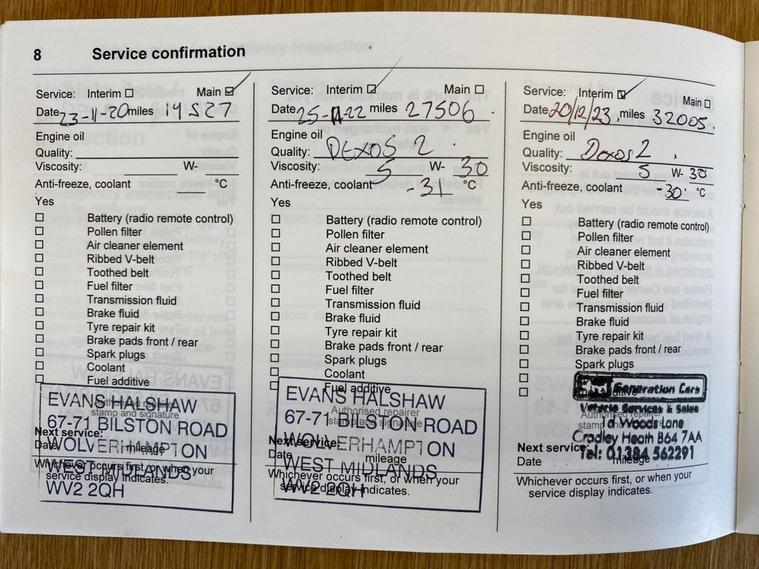 8 Service confirmation
Service: Interim ☐ Main ☑
Date 23-11-20 miles 19527
Engine oil
Quality:
Viscosity: W-
Anti-freeze, coolant °C
Yes
☐ Battery (radio remote control)
☐ Pollen filter
☐ Air cleaner element
☐ Ribbed V-belt
☐ Toothed belt
☐ Fuel filter
☐ Transmission fluid
☐ Brake fluid
☐ Tyre repair kit
☐ Brake pads front / rear
☐ Spark plugs
☐ Coolant
☐ Fuel additive
Authorised repairer
stamp and signature
EVANS HALSHAW
67-71 BILSTON ROAD
WOLVERHAMPTON
WEST MIDLANDS
WV2 2QH
Next service:
Date mileage
Whichever occurs first, or when your
service display indicates.
Service: Interim ☑ Main ☐
Date 25-11-22 miles 27506
Engine oil
Quality: DEXOS 2
Viscosity: 5 W- 30
Anti-freeze, coolant -31 °C
Yes
☐ Battery (radio remote control)
☐ Pollen filter
☐ Air cleaner element
☐ Ribbed V-belt
☐ Toothed belt
☐ Fuel filter
☐ Transmission fluid
☐ Brake fluid
☐ Tyre repair kit
☐ Brake pads front / rear
☐ Spark plugs
☐ Coolant
☐ Fuel additive
Authorised repairer
stamp and signature
EVANS HALSHAW
67-71 BILSTON ROAD
WOLVERHAMPTON
WEST MIDLANDS
WV2 2QH
Next service:
Date mileage
Whichever occurs first, or when your
service display indicates.
Service: Interim ☑ Main ☐
Date 20/12/23 miles 32005
Engine oil
Quality: Dexos 2
Viscosity: 5 W- 30
Anti-freeze, coolant -30 °C
Yes
☐ Battery (radio remote control)
☐ Pollen filter
☐ Air cleaner element
☐ Ribbed V-belt
☐ Toothed belt
☐ Fuel filter
☐ Transmission fluid
☐ Brake fluid
☐ Tyre repair kit
☐ Brake pads front / rear
☐ Spark plugs
Generation Cars
Vehicle Services & Sales
Woods Lane
Cradley Heath B64 7AA
Tel: 01384 562291
Next service:
Date mileage
Whichever occurs first, or when your
service display indicates.